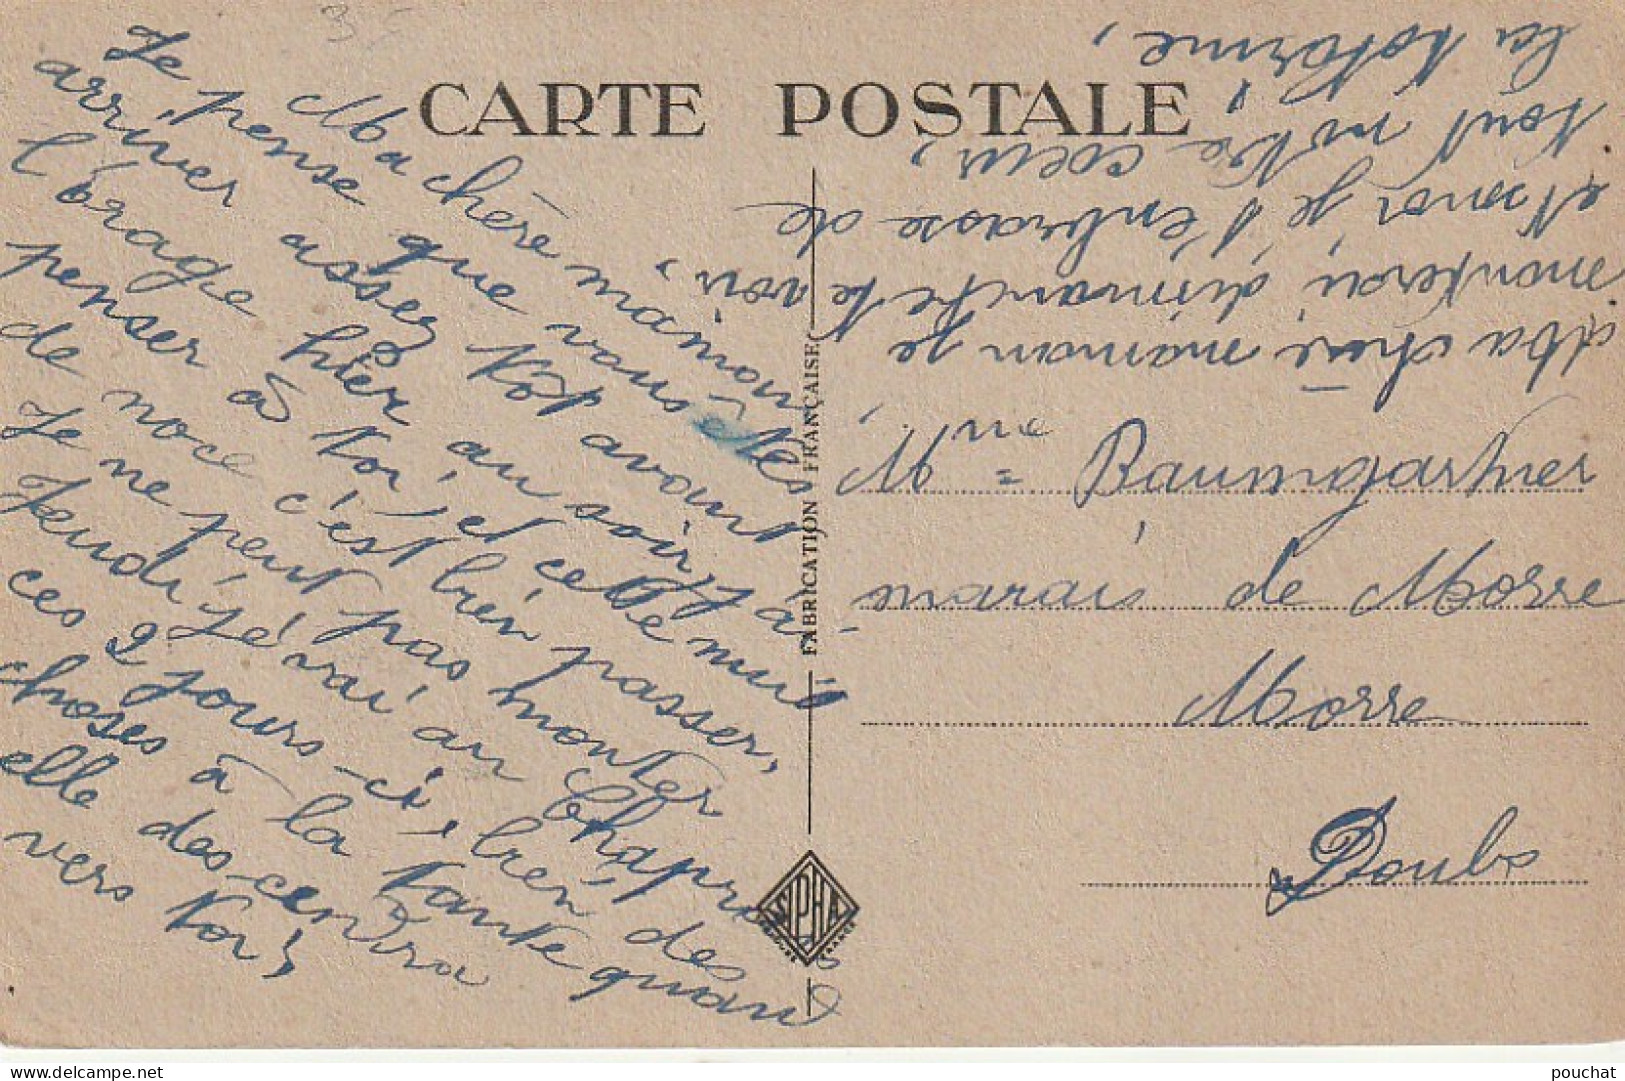 CARTE POSTALE
Ma chère maman
Je pense que vous êtes
arriver assez tôt avant
l'orage hier au soir, j'ai
penser à toi et cette nuit
de noce c'est bien passer,
Je ne peut pas monter
Jeudi je vai au Chaprais
ces 2 jours-ci, bien des
choses à la tante quand
elle descendra
vers toi;
Ma chère maman je
monterai dimanche te voir,
et moi je t'embrasse de
tout notre coeur,
FABRICATION FRANÇAISE
Mme Baumgartner
marais de Morre
Morre
Doubs
SIPHA
FRANCE
pouchat